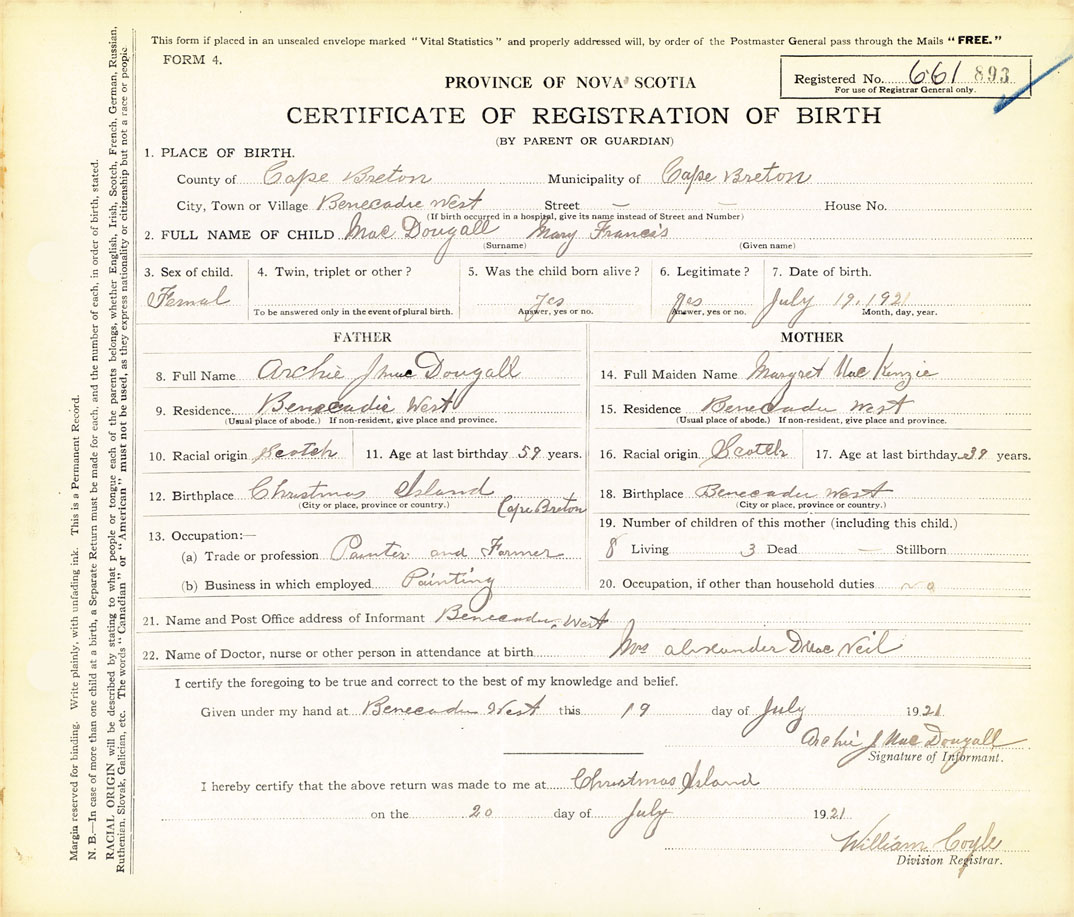 This form if placed in an unsealed envelope marked "Vital Statistics" and properly addressed will, by order of the Postmaster General pass through the Mails "FREE."
FORM 4.
Registered No. 661 893
For use of Registrar General only.
PROVINCE OF NOVA SCOTIA
CERTIFICATE OF REGISTRATION OF BIRTH
(BY PARENT OR GUARDIAN)
1. PLACE OF BIRTH.
County of Cape Breton Municipality of Cape Breton
City, Town or Village Benecadie West Street — — House No.
(If birth occurred in a hospital, give its name instead of Street and Number)
2. FULL NAME OF CHILD Mac Dougall Mary Francis
(Surname) (Given name)
3. Sex of child. 4. Twin, triplet or other? 5. Was the child born alive? 6. Legitimate? 7. Date of birth.
Femal Yes Yes July 19, 1921
To be answered only in the event of plural birth. Answer, yes or no. Answer, yes or no. Month, day, year.
FATHER
8. Full Name Archie J Mac Dougall
9. Residence Benecadie West
(Usual place of abode.) If non-resident, give place and province.
10. Racial origin Scotch 11. Age at last birthday 59 years.
12. Birthplace Christmas Island
(City or place, province or country.) Cape Breton
13. Occupation:—
(a) Trade or profession Painter and Farmer
(b) Business in which employed Painting
MOTHER
14. Full Maiden Name Margret Mac Kinzie
15. Residence Benecadie West
(Usual place of abode.) If non-resident, give place and province.
16. Racial origin Scotch 17. Age at last birthday 39 years.
18. Birthplace Benecadie West
(City or place, province or country.)
19. Number of children of this mother (including this child.)
8 Living 3 Dead — Stillborn
20. Occupation, if other than household duties no
21. Name and Post Office address of Informant Benecadie West
22. Name of Doctor, nurse or other person in attendance at birth Mrs alexander D Mac Neil
I certify the foregoing to be true and correct to the best of my knowledge and belief.
Given under my hand at Benecadie West this 19 day of July 1921
Archie J Mac Dougall
Signature of Informant.
I hereby certify that the above return was made to me at Christmas Island
on the 20 day of July 1921
William Coyle
Division Registrar.
Margin reserved for binding. Write plainly, with unfading ink. This is a Permanent Record.
N. B.—In case of more than one child at a birth, a Separate Return must be made for each, and the number of each, in order of birth, stated.
RACIAL ORIGIN will be described by stating to what people or tongue each of the parents belongs, whether English, Irish, Scotch, French, German, Russian,
Ruthenian, Slovak, Galician, etc. The words "Canadian" or "American" must not be used, as they express nationality or citizenship but not a race or people